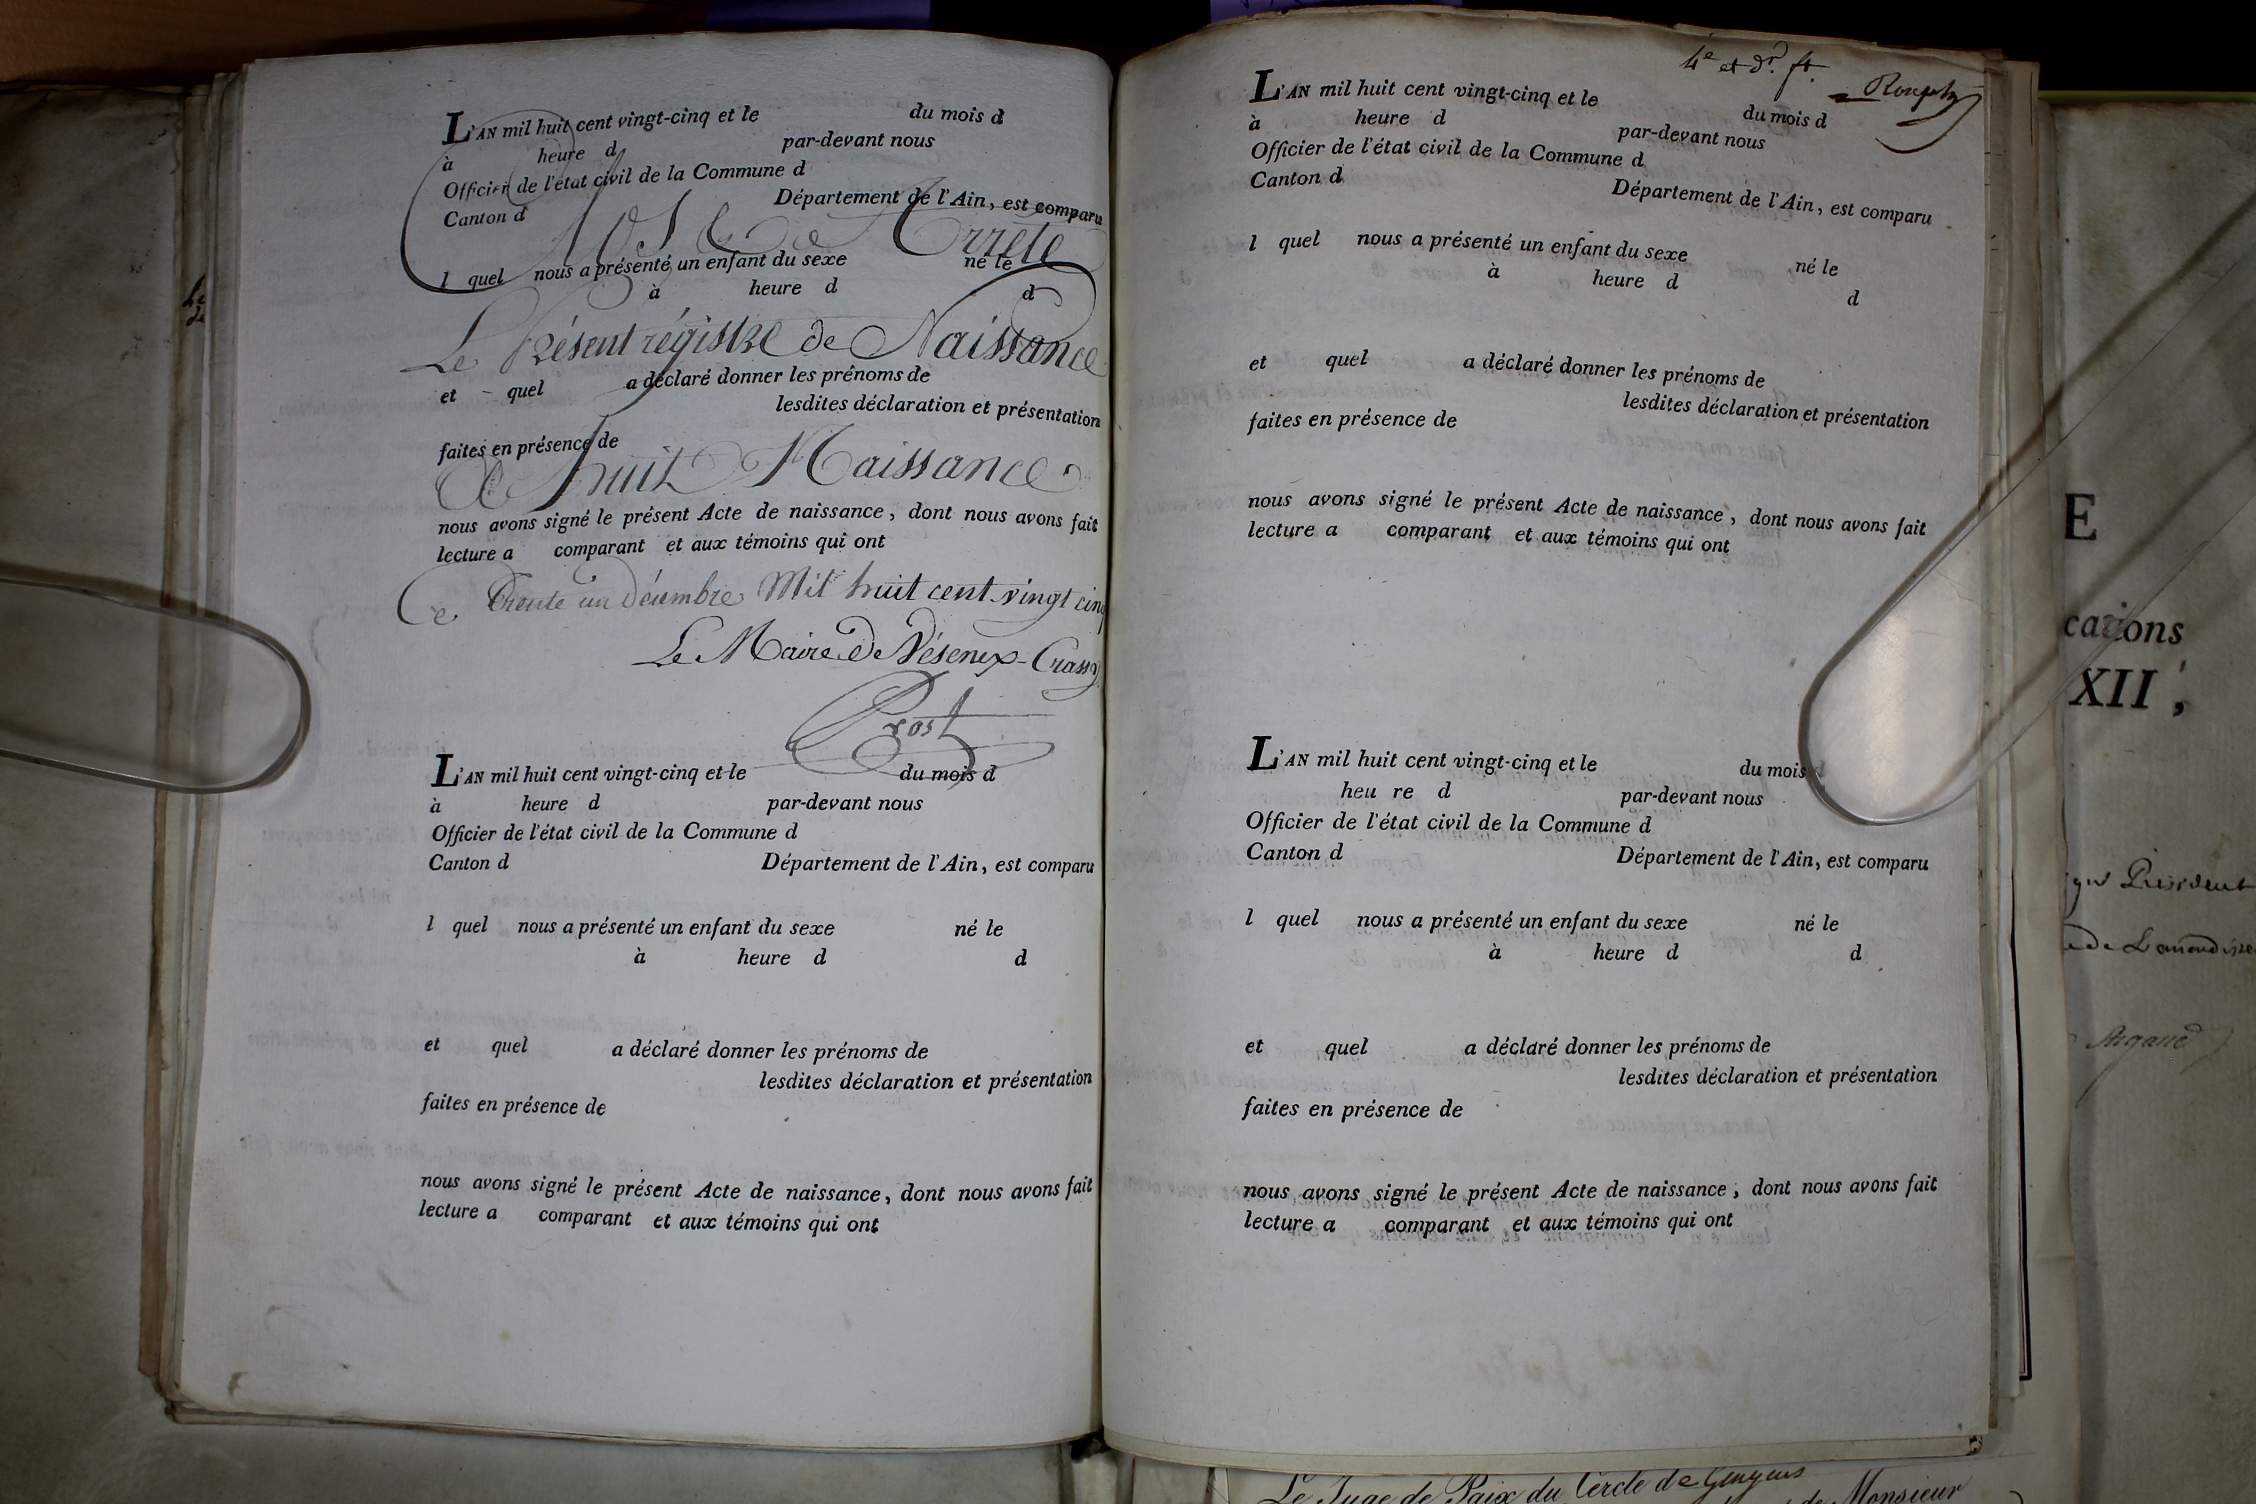 L'AN mil huit cent vingt-cinq et le du mois d
à heure d par-devant nous
Officier de l'état civil de la Commune d
Canton d Département de l'Ain, est comparu
Clos & Arreté
l quel nous a présenté un enfant du sexe né le
à heure d d
Le Présent régistre de Naissance
et quel a déclaré donner les prénoms de
lesdites déclaration et présentation
faites en présence de
de huit Naissance
nous avons signé le présent Acte de naissance, dont nous avons fait
lecture a comparant et aux témoins qui ont
Ce Trente un Décembre Mil huit cent vingt cinq
Le Maire De Vésenex-Crassy
Prost
L'AN mil huit cent vingt-cinq et le du mois d
à heure d par-devant nous
Officier de l'état civil de la Commune d
Canton d Département de l'Ain, est comparu
l quel nous a présenté un enfant du sexe né le
à heure d d
et quel a déclaré donner les prénoms de
lesdites déclaration et présentation
faites en présence de
nous avons signé le présent Acte de naissance, dont nous avons fait
lecture a comparant et aux témoins qui ont
4e et dr. ft.
L'AN mil huit cent vingt-cinq et le du mois d
à heure d par-devant nous
Officier de l'état civil de la Commune d
Canton d Département de l'Ain, est comparu
l quel nous a présenté un enfant du sexe né le
à heure d d
et quel a déclaré donner les prénoms de
lesdites déclaration et présentation
faites en présence de
nous avons signé le présent Acte de naissance, dont nous avons fait
lecture a comparant et aux témoins qui ont
L'AN mil huit cent vingt-cinq et le du mois d
heu re d par-devant nous
Officier de l'état civil de la Commune d
Canton d Département de l'Ain, est comparu
l quel nous a présenté un enfant du sexe né le
à heure d d
et quel a déclaré donner les prénoms de
lesdites déclaration et présentation
faites en présence de
nous avons signé le présent Acte de naissance, dont nous avons fait
lecture a comparant et aux témoins qui ont
E
cations
XII,
Président
Le Juge de Paix du Cercle de
de Monsieur